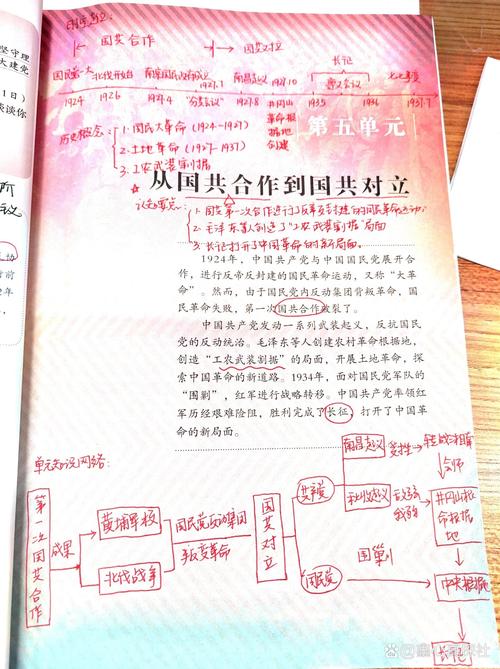 时间轴:
国共合作 国共对立
长征
国民党一大 北伐开始 南京国民政府成立 南昌起义 遵义会议 七七事变
1927.7 1927.10
1924 1926 1927.4 "分共会议" 1927.8 井冈山革命根据地创建 1935 1936 1937.7
历史概念:
1.国民大革命(1924-1927)
2.土地革命(1927-1937)
3.工农武装割据
第五单元
从国共合作到国共对立
1.国共第一次合作进行了反帝反封建的国民革命运动;
2.毛泽东等人创造了"工农武装割据"局面
3.长征打开了中国革命的新局面。
1924年,中国共产党与中国国民党展开合
作,进行反帝反封建的国民革命运动,又称“大革
命”。然而,由于国民党内反动集团背叛革命,国
民革命失败,第一次国共合作破裂了。
中国共产党发动一系列武装起义,反抗国民
党的反动统治。毛泽东等人创建农村革命根据地,
创造“工农武装割据”的局面,开展土地革命,探
索中国革命的新道路。1934年,面对国民党军队的
“围剿”,红军进行战略转移。中国共产党率领红
军历经艰难险阻,胜利完成了长征,打开了中国革
命的新局面。
单元知识网络:
第一次国共合作
成果
黄埔军校
北伐战争
国民党反动集团
叛变革命
国共对立
共产党
国民党
南昌起义
受挫
会师
秋收起义
井冈山革命根据地
围剿
中央根据地
长征
坚守理
大建党
1日)
谈谈你
所
议